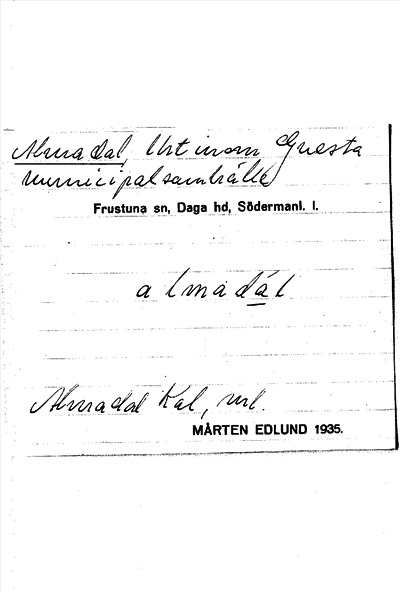 Almadal, lht inom Gnesta
municipalsamhälle
Frustuna sn, Daga hd, Södermanl. l.
a l m a d á l
Almadal Kal, ml.
MÅRTEN EDLUND 1935.